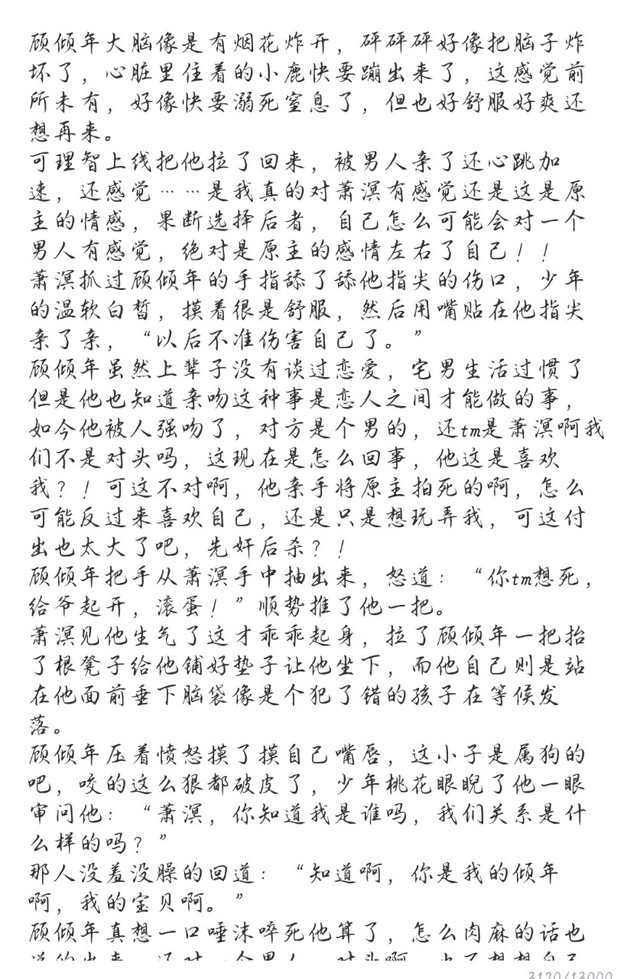 顾倾年大脑像是有烟花炸开，砰砰砰好像把脑子炸
坏了，心脏里住着的小鹿快要蹦出来了，这感觉前
所未有，好像快要溺死窒息了，但也好舒服好爽还
想再来。
可理智上线把他拉了回来，被男人亲了还心跳加
速，还感觉……是我真的对萧溟有感觉还是这是原
主的情感，果断选择后者，自己怎么可能会对一个
男人有感觉，绝对是原主的感情左右了自己！！
萧溟抓过顾倾年的手指舔了舔他指尖的伤口，少年
的温软白皙，摸着很是舒服，然后用嘴贴在他指尖
亲了亲，“以后不准伤害自己了。”
顾倾年虽然上辈子没有谈过恋爱，宅男生活过惯了
但是他也知道亲吻这种事是恋人之间才能做的事，
如今他被人强吻了，对方是个男的，还tm是萧溟啊我
们不是对头吗，这现在是怎么回事，他这是喜欢
我？！可这不对啊，他亲手将原主拍死的啊，怎么
可能反过来喜欢自己，还是只是想玩弄我，可这付
出也太大了吧，先奸后杀？！
顾倾年把手从萧溟手中抽出来，怒道：“你tm想死，
给爷起开，滚蛋！”顺势推了他一把。
萧溟见他生气了这才乖乖起身，拉了顾倾年一把抬
了根凳子给他铺好垫子让他坐下，而他自己则是站
在他面前垂下脑袋像是个犯了错的孩子在等候发
落。
顾倾年压着愤怒摸了摸自己嘴唇，这小子是属狗的
吧，咬的这么狠都破皮了，少年桃花眼睨了他一眼
审问他：“萧溟，你知道我是谁吗，我们关系是什
么样的吗？”
那人没羞没臊的回道：“知道啊，你是我的倾年
啊，我的宝贝啊。”
顾倾年真想一口唾沫啐死他算了，怎么肉麻的话也
3120/13000